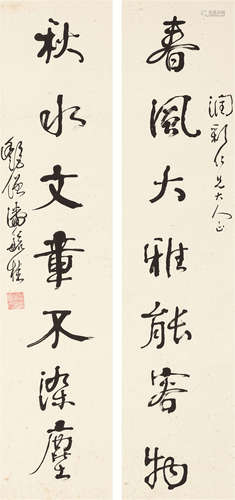 春風大雅能容物
潤彰仁兄大人正
秋水文章不染塵
潘齡桂